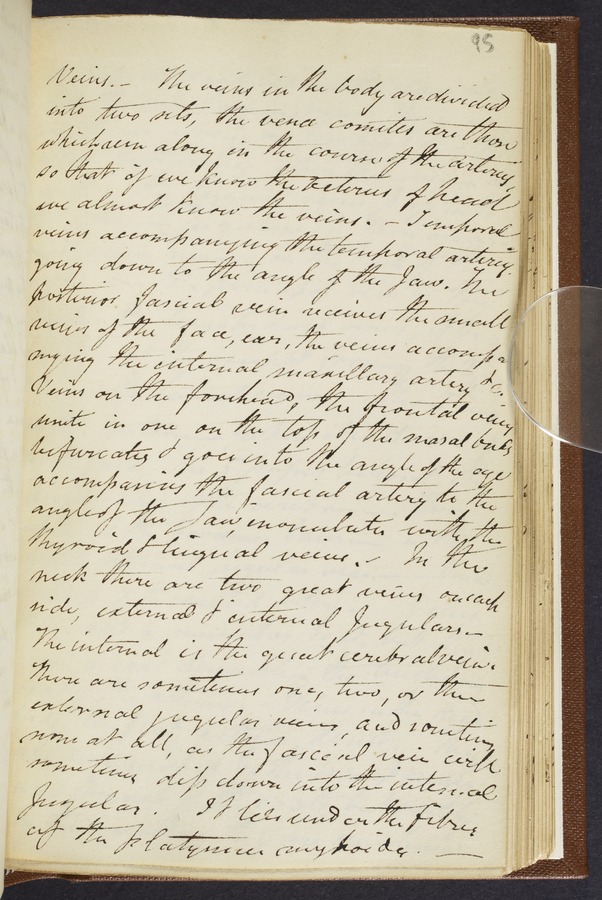 95
Veins. - The veins in the body are divided
into two sets, the vena comites are those
which run along in the course of the arteries,
so that if we know the arteries of head
we almost know the veins. - Temporal
veins accompanying the temporal artery.
going down to the angle of the Jaw. The
posterior fascial vein receives the small
veins of the face, ear, the veins accompa
nying the internal maxillary artery &c.
Veins on the forehead, the frontal veins
unite in one on the top of the nasal
befurcates & goes into the angle of the eye
accompanies the fascial artery to the
angle of the Jaw, inosculates with the
thyroid & lingual veins. - In the
neck there are two great veins on each
side, external & internal Jugulars. -
The internal is the great cerebral vein.
There are sometimes one, two, or three
external jugular veins, and sometimes
none at all, as the fascial vein will
sometimes dip down into the internal
Jugular. It lies under the fibres
of the platysma myhoides. -